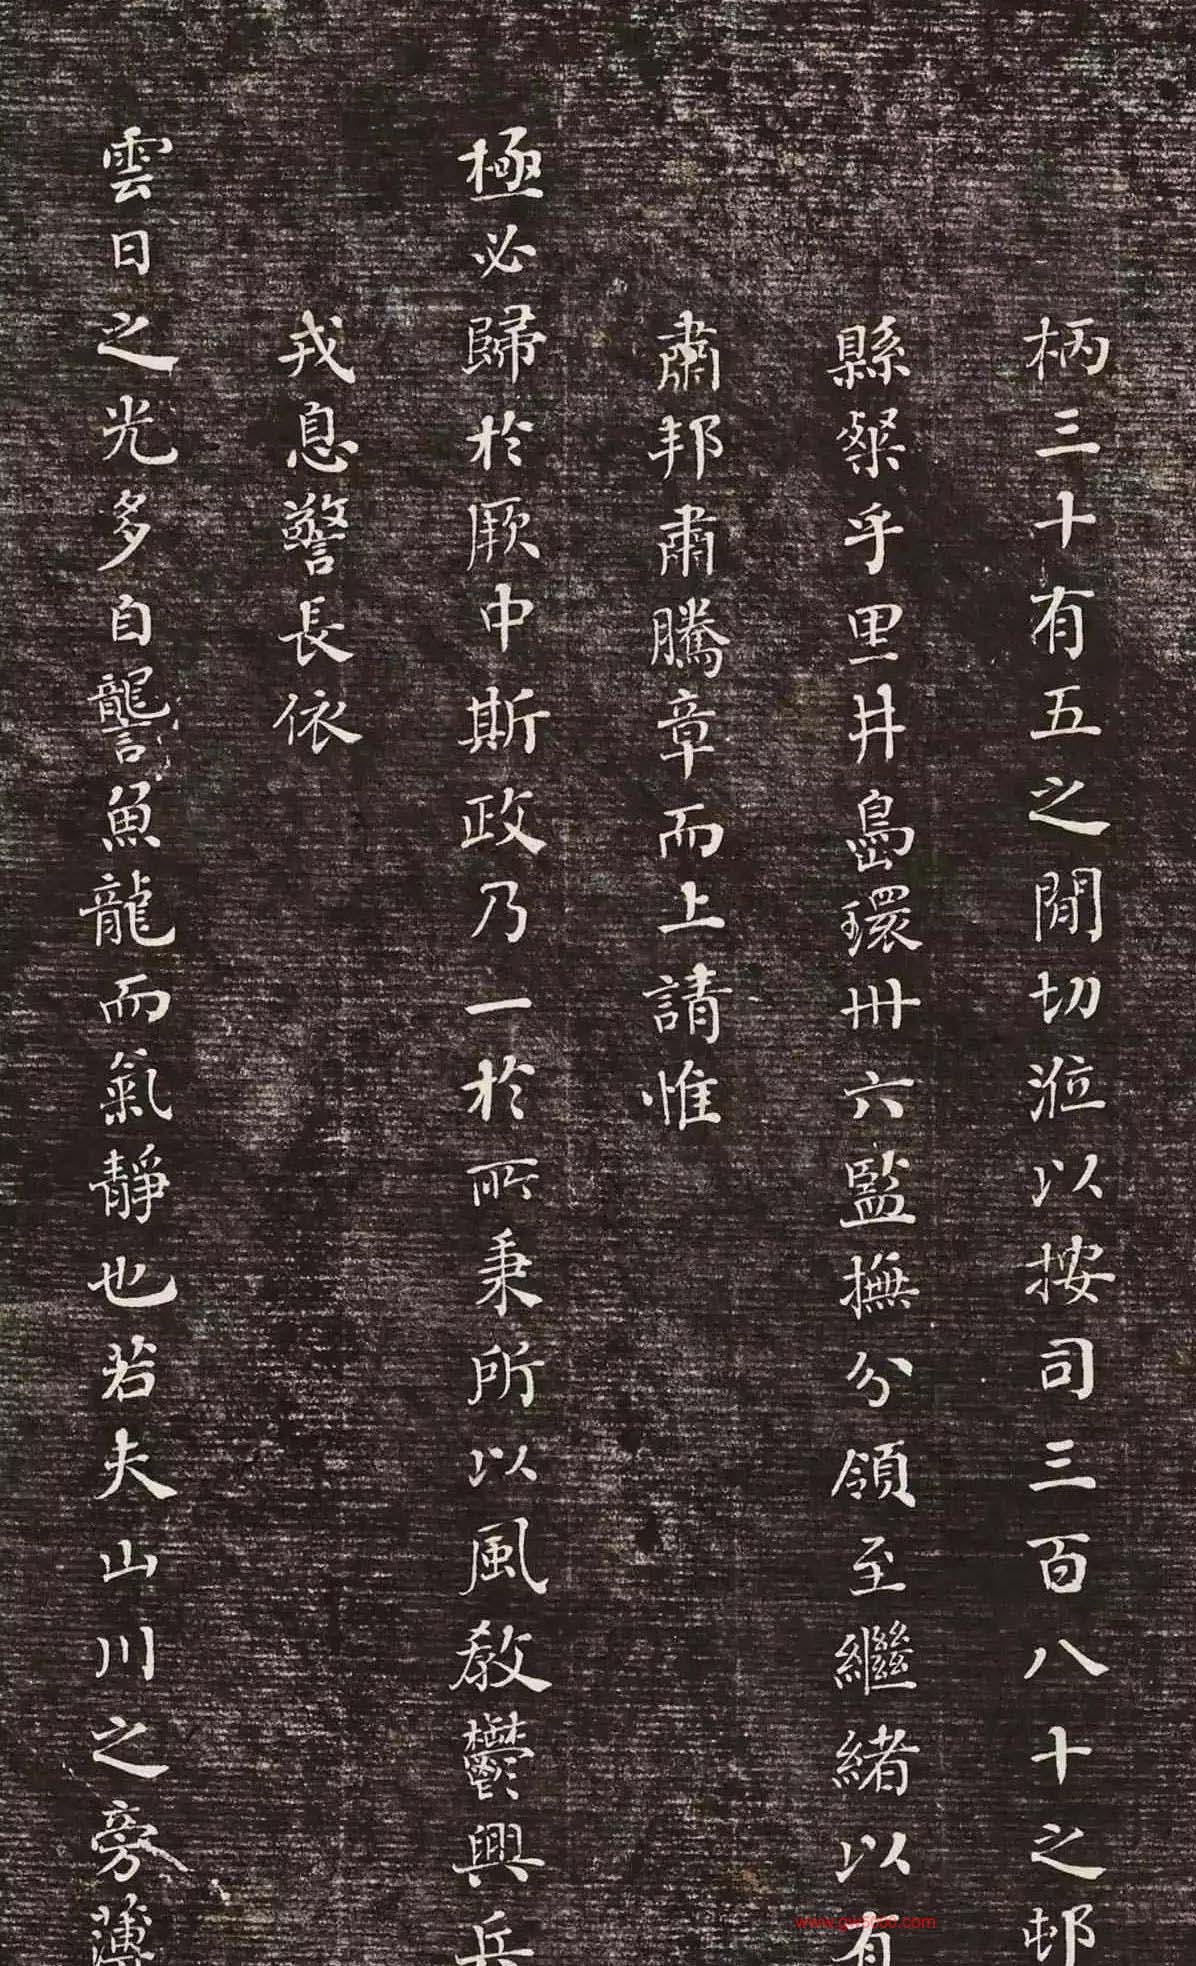 柄三十有五之閒切涖以按司三百八十之邨
縣粲乎里井島環卅六監撫分領至繼緒以有
肅邦肅肅騰章而上請惟
極必歸於厥中斯政乃一於所秉所以風教鬱興兵
戎息警長依
雲日之光多自讋魚龍而氣靜也若夫山川之旁薄
www.gw5000.com